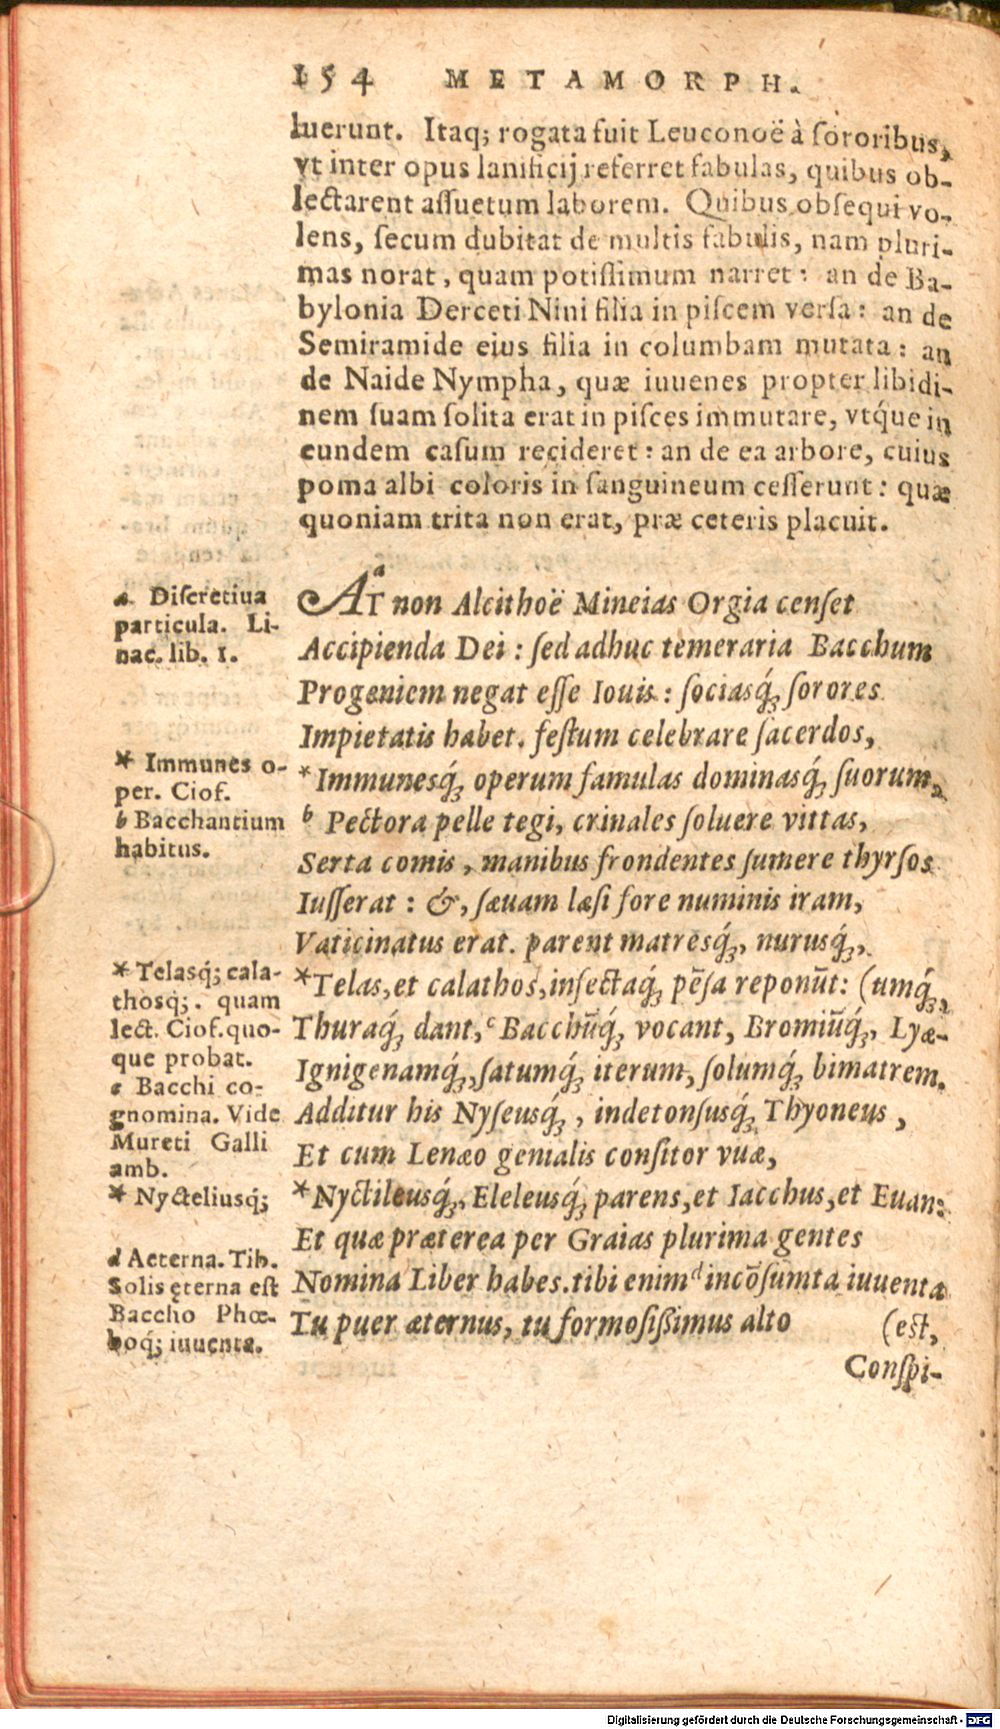 154 METAMORPH.
luerunt. Itaq; rogata fuit Leuconoë à ſororibus,
vt inter opus lanificij referret fabulas, quibus ob-
lectarent aſſuetum laborem. Quibus obſequi vo-
lens, ſecum dubitat de multis fabulis, nam pluri-
mas norat, quam potiſſimum narret: an de Ba-
bylonia Derceti Nini filia in piſcem verſa: an de
Semiramide eius filia in columbam mutata: an
de Naide Nympha, quæ iuuenes propter libidi-
nem ſuam ſolita erat in piſces immutare, vtq́ue in
eundem caſum recideret: an de ea arbore, cuius
poma albi coloris in ſanguineum ceſſerunt: quæ
quoniam trita non erat, præ ceteris placuit.
a Diſcretiua
particula. Li-
nac. lib. 1.
* Immunes o-
per. Ciof.
b Bacchantium
habitus.
* Telasq́; cala-
thosq́;. quam
lect. Ciof. quo-
que probat.
c Bacchi co-
gnomina. Vide
Mureti Galli
amb.
* Nycteliusq́;
d Aeterna. Tib.
Solis ęterna eſt
Baccho Phœ-
boq́; iuuenta.
a
AT non Alcithoë Mineias Orgia cenſet
Accipienda Dei: ſed adhuc temeraria Bacchum
Progeniem negat eſſe Iouis: ſociasq́; ſorores
Impietatis habet. feſtum celebrare ſacerdos,
*Immunesq́; operum famulas dominasq́; ſuorum,
b Pectora pelle tegi, crinales ſoluere vittas,
Serta comis, manibus frondentes ſumere thyrſos
Iuſſerat: &, ſæuam læſi fore numinis iram,
Vaticinatus erat. parent matresq́;, nurusq́;,
*Telas, et calathos, infectaq́; pẽſa reponũt: (umq́;,
Thuraq́; dant, c Bacchũq́; vocant, Bromiũq́;, Lyæ-
Ignigenamq́;, ſatumq́; iterum, ſolumq́; bimatrem.
Additur his Nyſeusq́;, indetonſusq́; Thyoneus,
Et cum Lenæo genialis conſitor vuæ,
*Nyctileusq́;, Eleleusq́; parens, et Iacchus, et Euan:
Et quæ præterea per Graias plurima gentes
Nomina Liber habes. tibi enim d incõſumta iuuenta
Tu puer æternus, tu formoſiſſimus alto (eſt,
Conſpi-
Digitalisierung gefördert durch die Deutsche Forschungsgemeinschaft - DFG